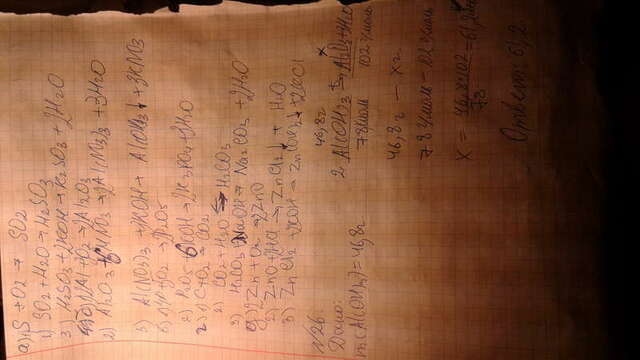 а) S + O2 → SO2
2) SO2 + H2O → H2SO3
3) H2SO3 + 2KOH → K2SO3 + 2H2O
Al + O2 → 2Al2O3
2) Al2O3 + 6HNO3 → 2Al(NO3)3 + 3H2O
3) Al(NO3)3 + 3KOH → Al(OH)3↓ + 3KNO3
O2 → 2P2O5
2) P2O5 6KOH → 2K3PO4 + 3H2O
C + O2 → CO2
2) CO2 + H2O ⇄ H2CO3
3) H2CO3 + 2NaOH → Na2CO3 + 2H2O
д) 2Zn + O2 → 2ZnO
2) ZnO + 2HCl → ZnCl2↓ + H2O
3) ZnCl2 + 2KOH → Zn(OH)2↓ + 2KCl
№26.
Дано:
m(Al(OH)3) = 46,8г
46,8г x
2 Al(OH)3 → Al2O3 + 3H2O
78г/моль 102г/моль
46,8г — xг
78г/моль — 102г/моль
x = 46,8·102 / 78 = 61,2
Ответ: 61,2